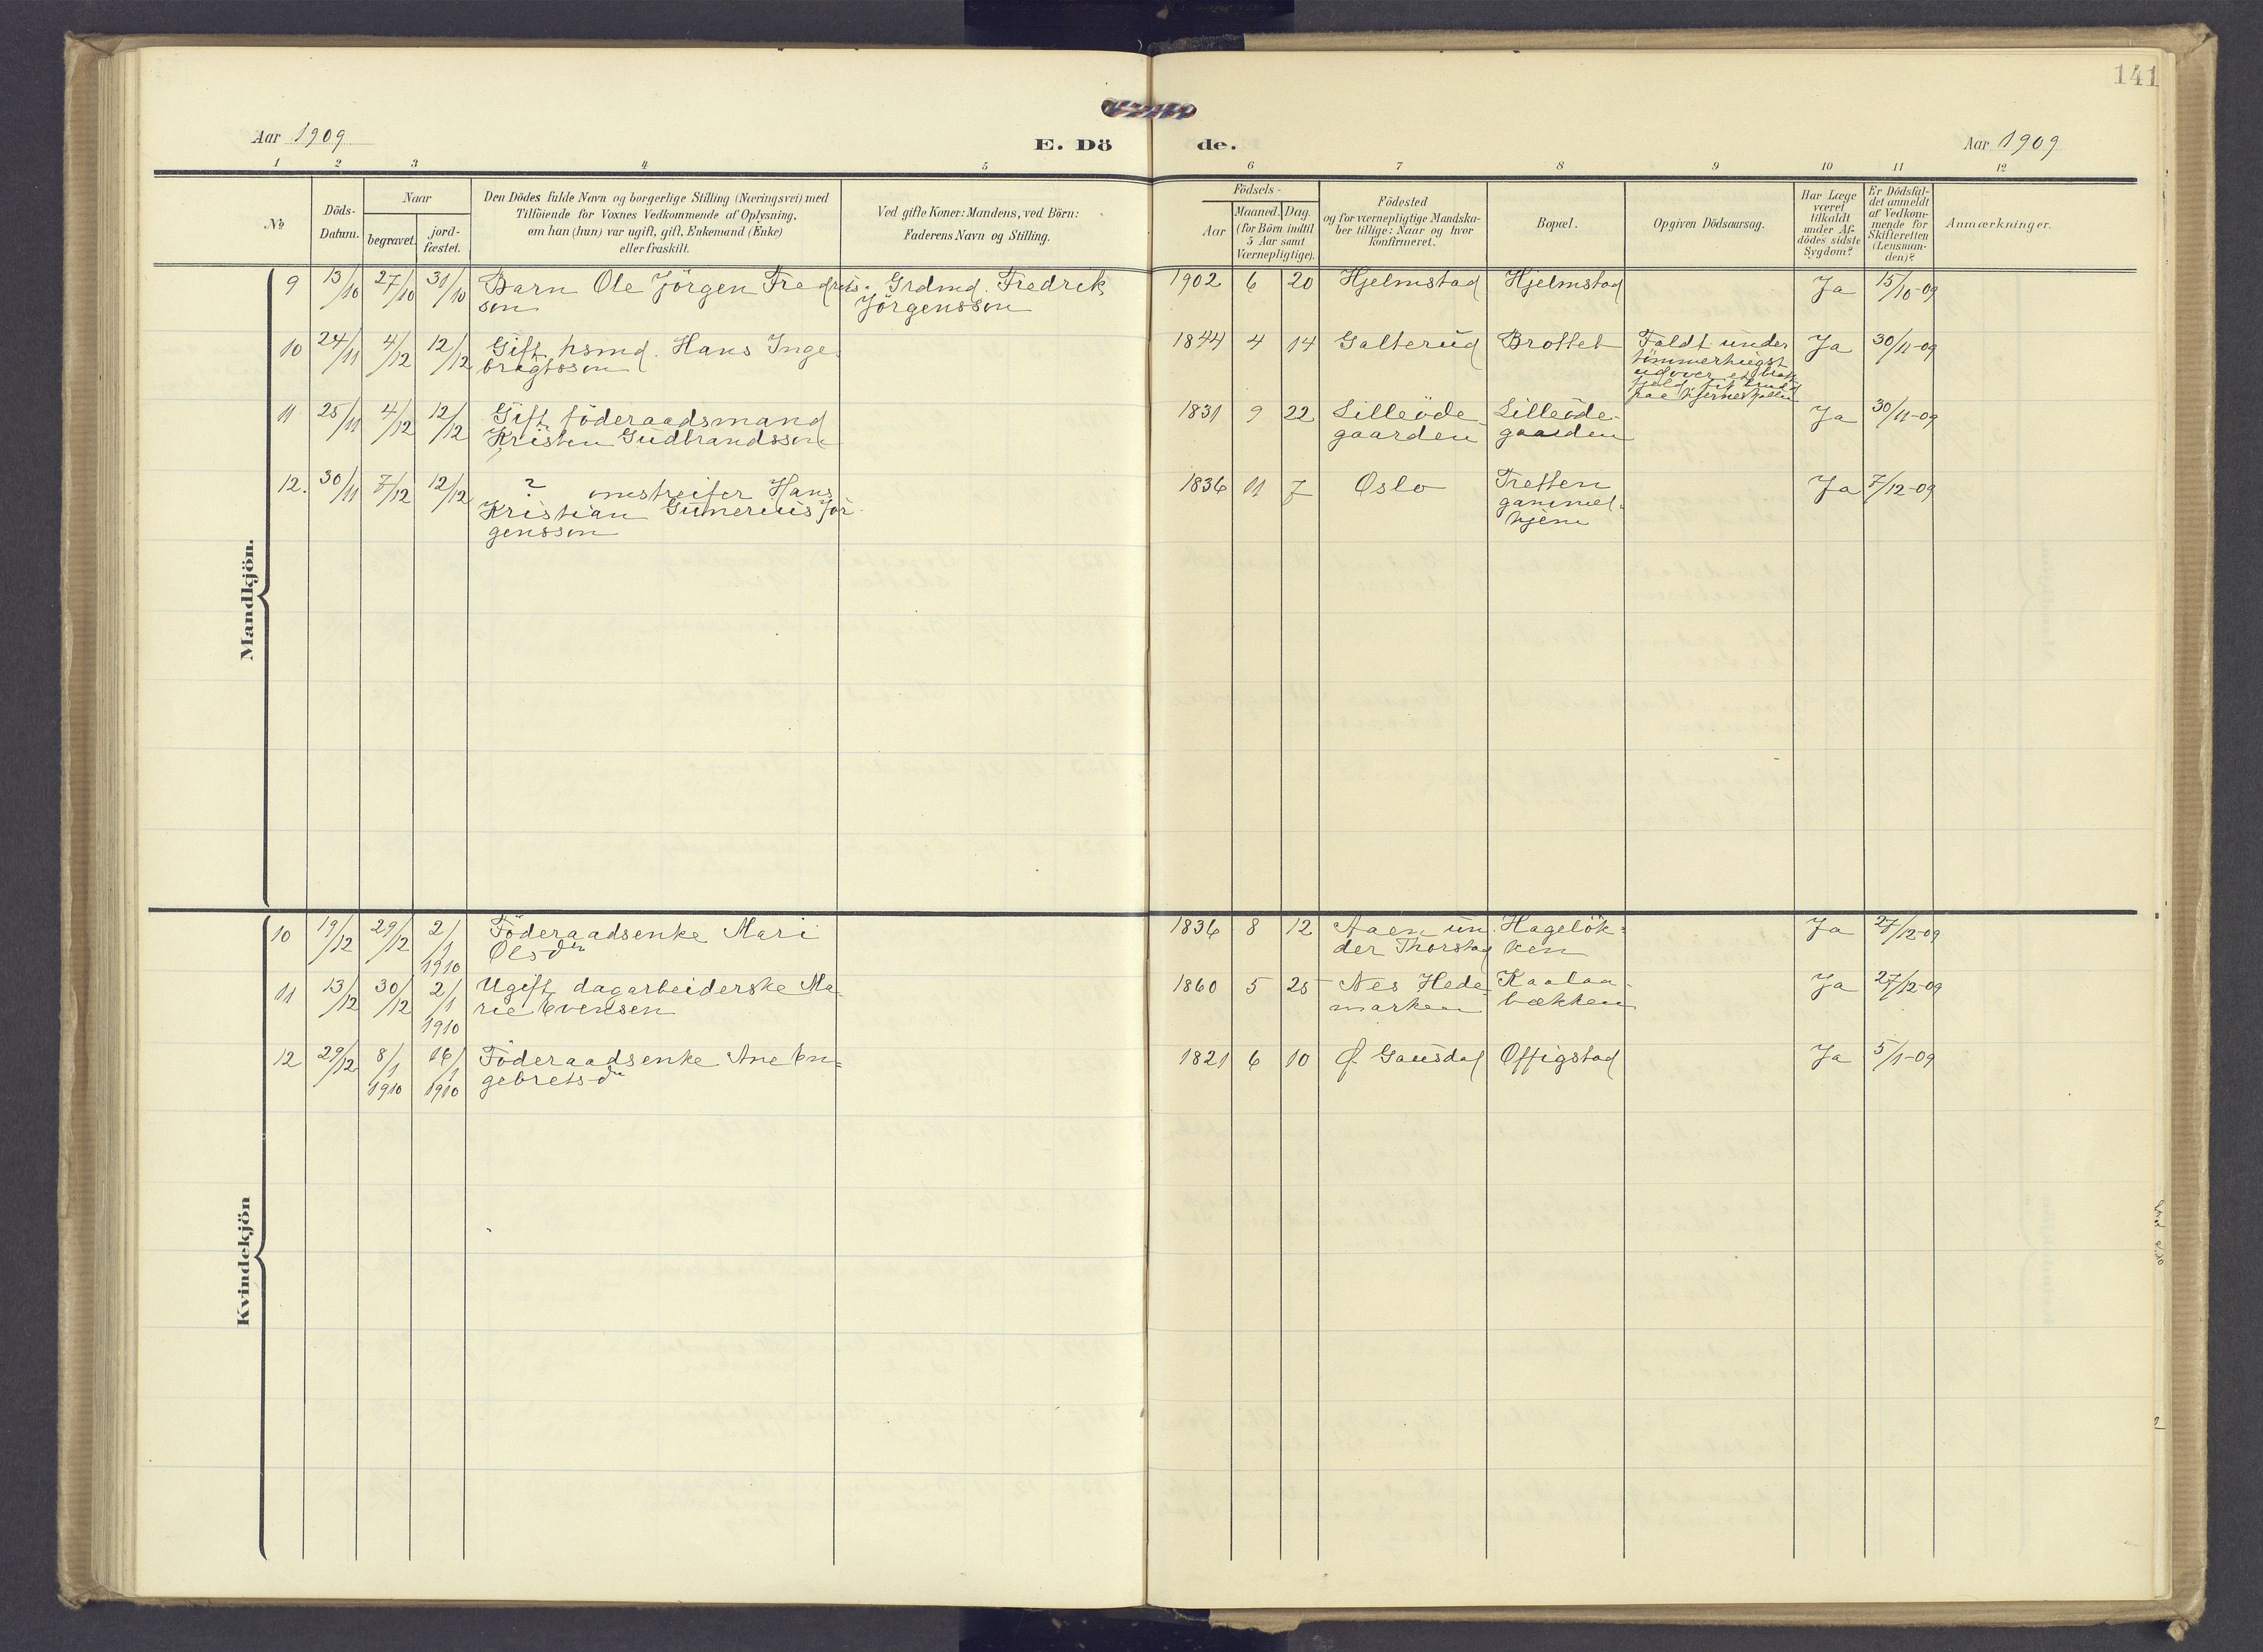 141
Aar 1909
E. Dö de.
Aar 1909
1 2 3 4 5 6 7 8 9 10 11 12
No
Döds-
Datum.
Naar
begravet.
jord-
fæstet.
Den Dödes fulde Navn og borgerlige Stilling (Næringsvei) med
Tilföiende for Voxnes Vedkommende af Oplysning,
om han (hun) var ugift, gift, Enkemand (Enke)
eller fraskilt.
Ved gifte Koner: Mandens, ved Börn:
Faderens Navn og Stilling.
Födsels-
Aar
Maaned. Dag.
(for Börn indtil
5 Aar samt
Værnepligtige).
Födested
og for værnepligtige Mandska-
ber tillige: Naar og hvor
konfirmeret.
Bopæl.
Opgiven Dödsaarsag.
Har Læge
været
tilkaldt
under Af-
dödes sidste
Sygdom?
Er Dödsfal-
det anmeldt
af Vedkom-
mende for
Skifteretten
(Lensman-
den)?
Anmærkninger.
Mandkjön.
9 13/10 27/10 31/10 Barn Ole Jörgen Fredriks- Grdmd. Fredrik 1902 6 20 Hjelmstad Hjelmstad Ja 15/10-09
son Jörgensson
10 24/11 4/12 12/12 Gift hsmd. Hans Inge- 1844 4 14 Galterud Brottet Faldt under Ja 30/11-09
brigtsson tömmerhugst
udover et
11 25/11 4/12 12/12 Gift föderaadsmand 1831 9 22 Lilleöde- Lilleöde- Ja 30/11-09
Kristen Gudbrandsson gaarden gaarden
12. 30/11 7/12 12/12 ? omstreifer Hans 1836 11 7 Oslo Tretten Ja 7/12-09
Kristian Gunerius Jör- gammel-
gensson hjem
Kvindekjön
10 19/12 29/12 2/1 Föderaadsenke Mari 1836 8 12 Aaen un- Hagelök- Ja 27/12-09
1910 Olsdtr der Thorstad ken
11 13/12 30/12 2/1 Ugift dagarbeiderske Ma- 1860 5 25 Nes Hede- Kaalaa- Ja 27/12-09
1910 rie Evensen marken bækken
12 29/12 8/1 16/1 Föderaadsenke Ane En= 1821 6 10 Ø. Gausdal Offigstad Ja 5/1-09
1910 1910 gebretsdtr